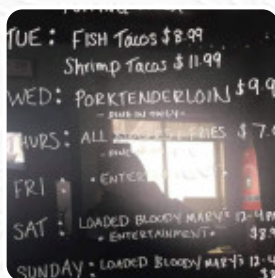 TUE: FISH TACOS $8.99
SHRIMP TACOS $11.99
WED: PORKTENDERLOIN $9.9
- DINE IN ONLY -
THURS: ALL FRIES $7.
FRI • ENTER
SAT: LOADED BLOODY MARY'S 12-4PM
• ENTERTAINMENT • $8.
SUNDAY: LOADED BLOODY MARY'S 12-4